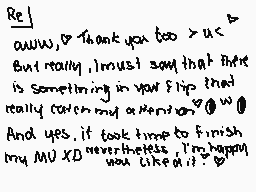 Re
aww,♡ Thank you too >u<
But really, I must say that there
is something in your flip that
really catch my attention♡ OwO
And yes, it took time to finish
my MV XD nevertheless, I'm happy
you liked it!♡